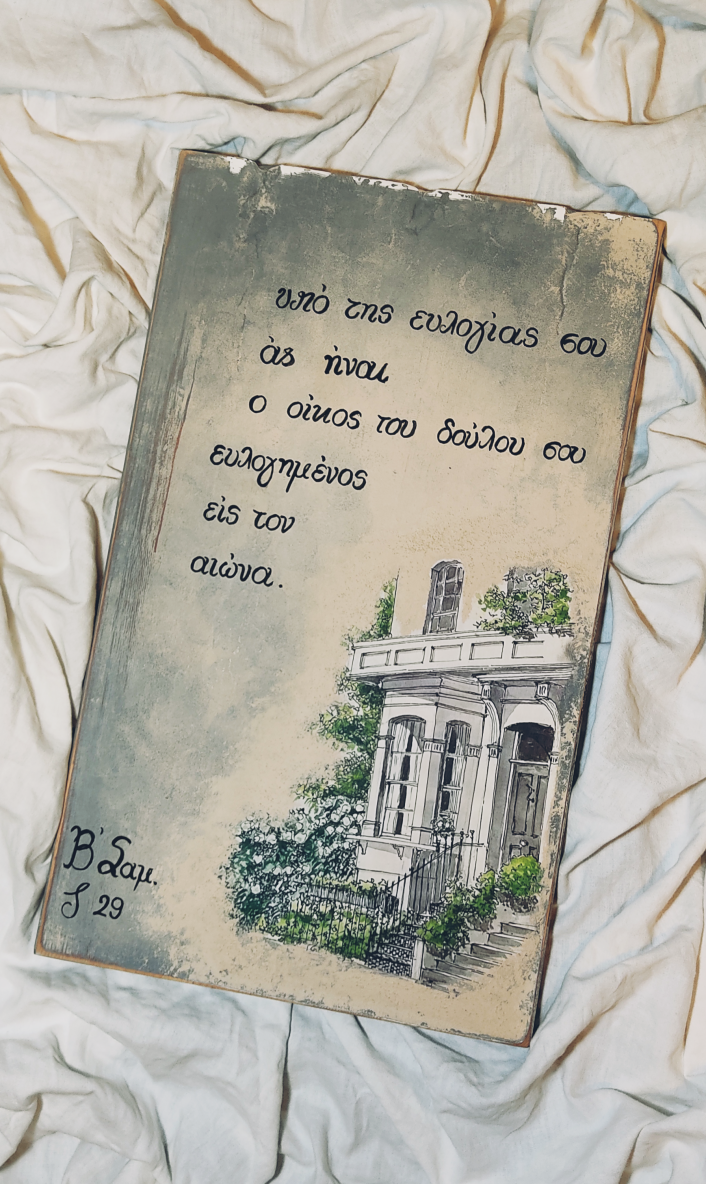 υπὸ της ευλογίας σου
ὰς ἠναι
ο οὶκος του δούλου σου
ευλογημένος
εὶς τον
αιώνα.
Β' Σαμ.
Ζ 29